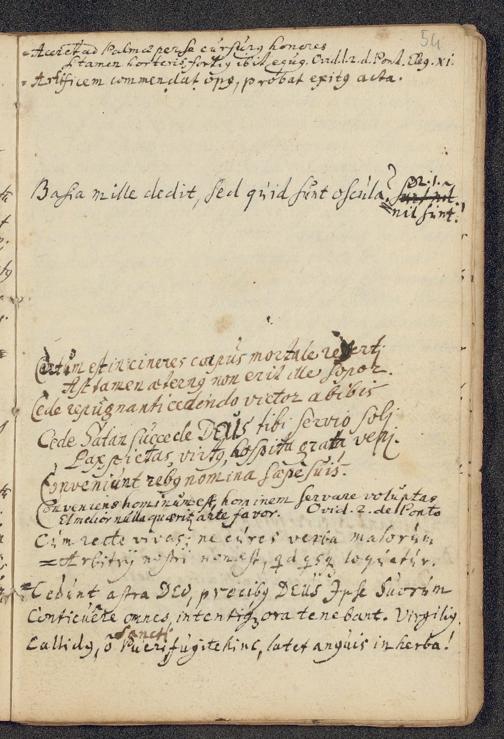 54
Acrēt ad Palmæ per se cursurq honores
Si tamen horteris fortiq ibit equq. Ovid. l. 2. d. Pont. Eleg. XI.
Artificem commendat opq, probat exitq acta.
Basia mille dedit, sed quid sunt oscula?
nil sunt!
Certum est in cineres corpus mortale reverti
Ast tamen æternq non erit ille sopor.
Cede repugnanti cedendo victor abibis
Cede Satan succede DEUS tibi servio soli
Pax pietas, virtq, hospita grata veni.
Conveniunt rebq nomina sæpe suis.
Conveniens hominum est hominem servare voluptas
Et melior nulla quæritr arte favor. Ovid. 2. de Ponto
Cum recte vivas; ne cures verba malorum
Arbitrii nostri non est, qd qsq loquetur.
Cedunt astra DEO, precibq DEUS Ipse Suorum
Conticuere omnes, intentiq ora tenebant. Virgiliq
Sancti
Callidq, o Pueri fugite hinc, latet anguis in herba!